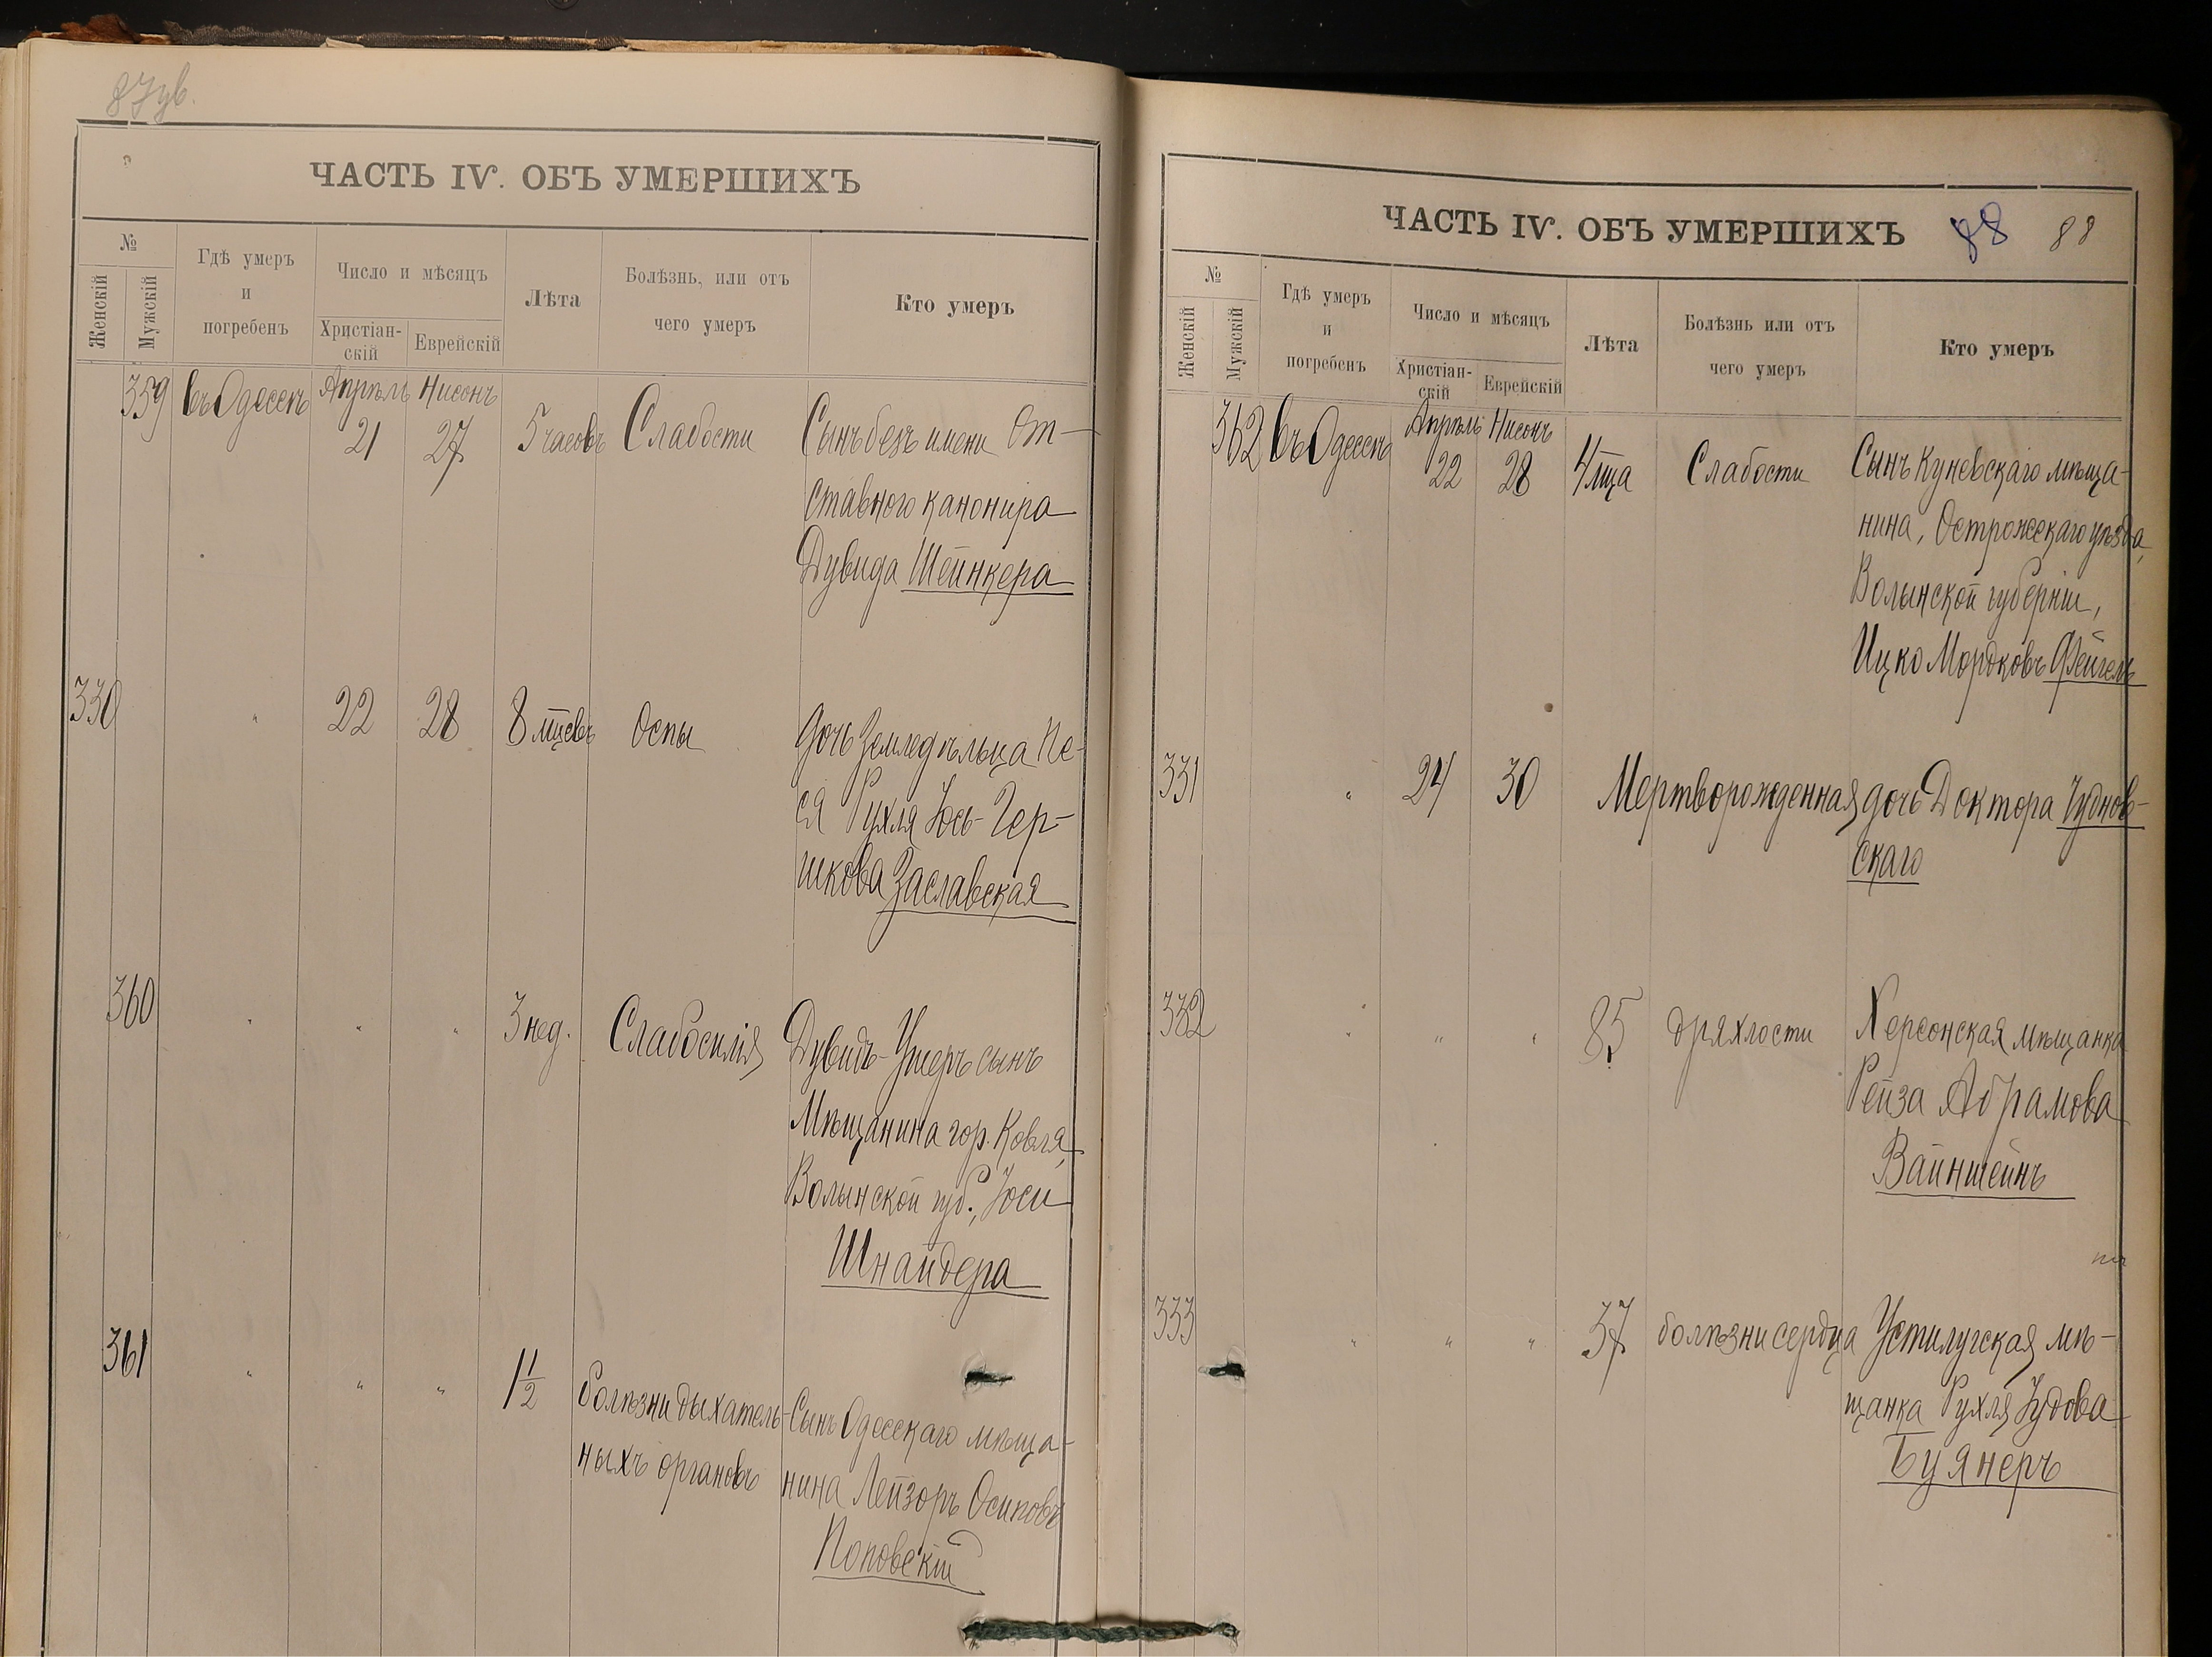 87 ув.
ЧАСТЬ IV. ОБЪ УМЕРШИХЪ
№
Женскій
Мужскій
Гдѣ умеръ
и
погребенъ
Число и мѣсяцъ
Христіан-
скій
Еврейскій
Лѣта
Болѣзнь, или отъ
чего умеръ
Кто умеръ
359 въ Одессѣ Апрѣль 21 Нисонъ 27 5 часовъ Слабости Сынъ безъ имени От-
ставного канонира
Дувида Шейнкера
330 " 22 28 8 мцевъ Оспы Дочь Земледѣльца Пе-
ся Рухля Іось-Гер-
шкова Заславская
360 " " " 3 нед. Слабосилія Дувидъ-Умеръ сынъ
Мѣщанина гор. Ковля,
Волынской губ., Іоси
Шнайдера
361 " " " 1 1/2 болѣзни дыхатель- Сынъ Одесскаго мѣща-
ныхъ органовъ нина Лейзоръ Осиповъ
Поповскій
ЧАСТЬ IV. ОБЪ УМЕРШИХЪ 88 88
№
Женскій
Мужскій
Гдѣ умеръ
и
погребенъ
Число и мѣсяцъ
Христіан-
скій
Еврейскій
Лѣта
Болѣзнь или отъ
чего умеръ
Кто умеръ
362 въ Одессѣ Апрѣль 22 Нисонъ 28 4 мца Слабости Сынъ Куневскаго мѣща-
нина, Острожскаго уѣзда,
Волынской губерніи,
Ицко Мордковъ Фейгель
331 " 24 30 Мертворожденная дочь Доктора Чуднов-
скаго
332 " " " 85 дряхлости Херсонская мѣщанка
Рейза Абрамова
Вайншейнъ
333 " " " 37 болѣзни сердца Устилугская мѣ-
щанка Рухля Іудова
Буянеръ